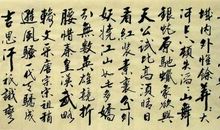 城内外惟餘莽大
河上下頓失滔山舞
銀蛇原馳蠟象欲與
天公試比高須晴日
看紅裝素裹分外
妖嬈江山如此多嬌
引無數英雄競折
腰惜秦皇漢武略
輸文采唐宗宋祖稍
遜風騷一代天驕成
吉思汗只識彎